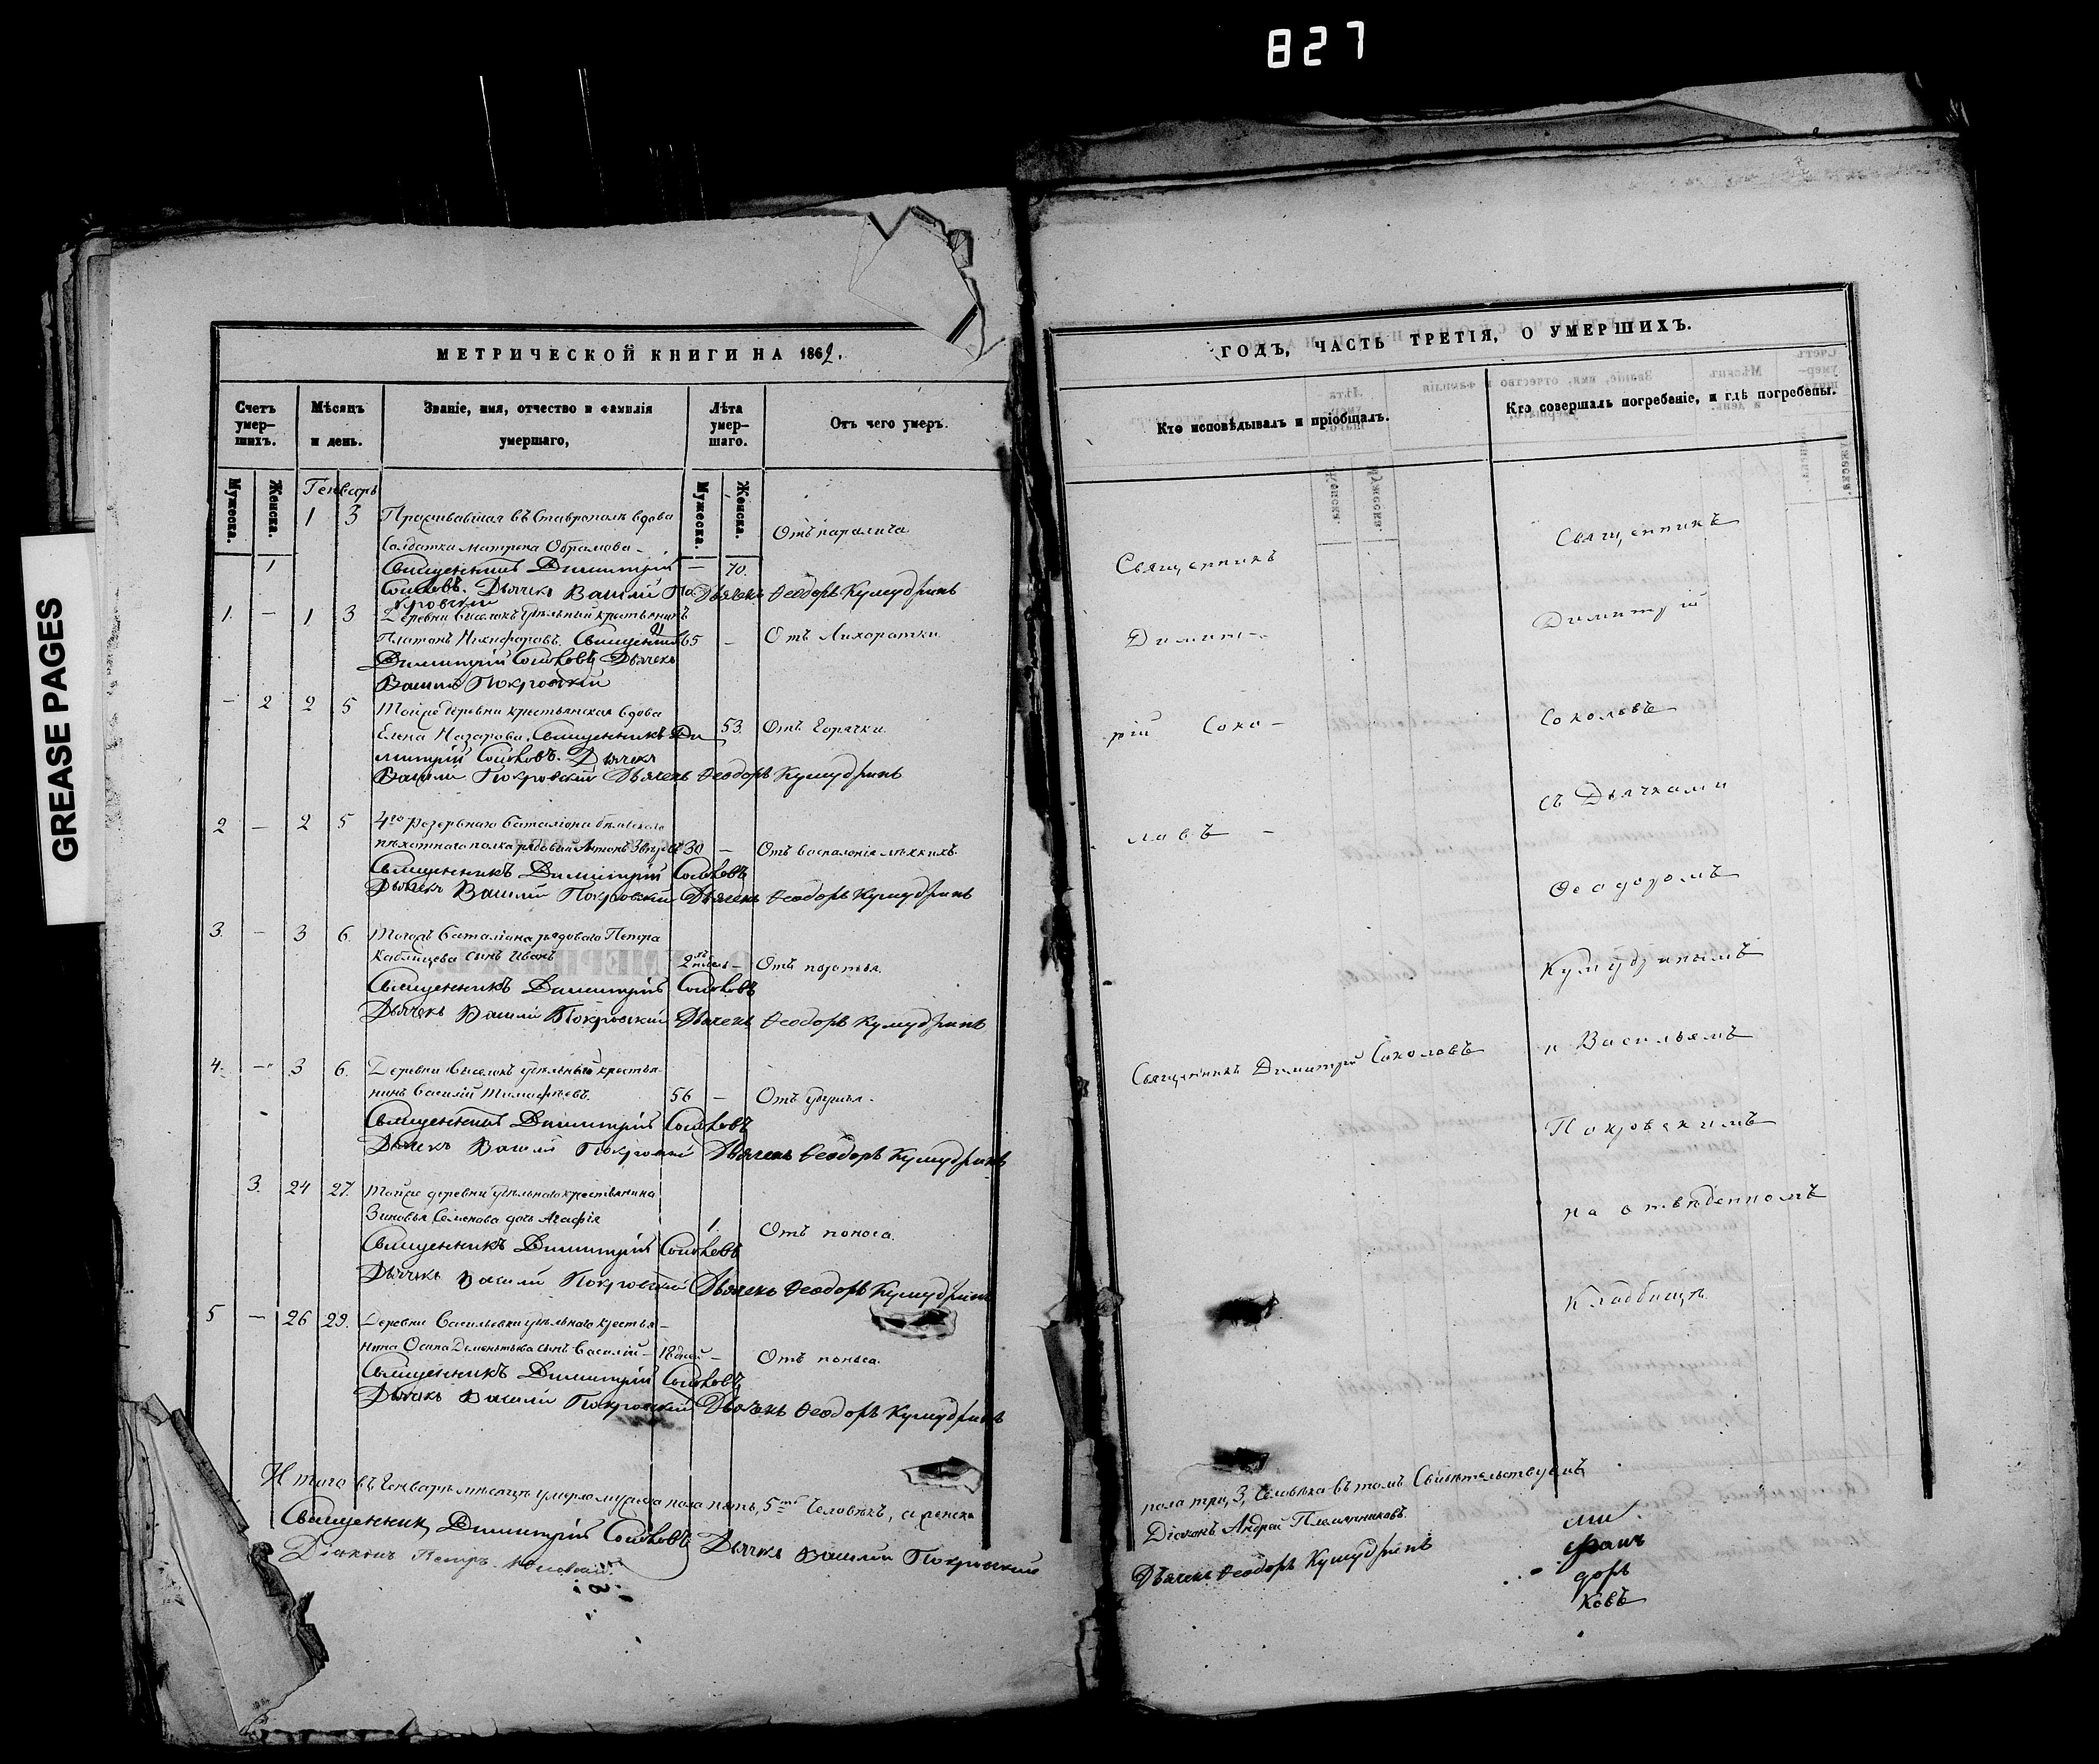 827
GREASE PAGES
МЕТРИЧЕСКОЙ КНИГИ НА 1862.
Счетъ умер-шихъ.
Мѣсяцъ и день.
Званіе, имя, отчество и фамилія умершаго,
Лѣта умер-шаго.
Отъ чего умеръ.
Мужеска.
Женска.
Мужеска.
Женска.
Генварь
1 3 Проживавшая въ Ставрополѣ вдова
Солдатка Матрена Обрамова - Отъ паралича
1 Священникъ Димитрій — 70.
Соколовъ. Дьячекъ Василій По- Дьячекъ Ѳеодоръ Кумудринъ
кровскій
1. — 1 3 Деревни Выселокъ удѣльный крестьянинъ
Платонъ Никифоровъ. Священникъ 65 — Отъ Лихоратки
Димитрій Соколовъ Дьячекъ
Василій Покровскій
— 2 2 5 Тойже деревни крестьянская вдова
Елена Назарова. Священникъ Ди 53. Отъ Горячки.
митрій Соколовъ. Дьячекъ
Василій Покровскій Дьячекъ Ѳеодоръ Кумудринъ
2 — 2 5 4го Резервнаго баталіона
пѣхотнаго полка рядовой Антонъ 30 — Отъ воспаленія лехкихъ.
Священникъ Димитрій Соколовъ
Дьячекъ Василій Покровскій Дьячекъ Ѳеодоръ Кумудринъ
3. — 3 6. Тогожъ баталіона рядоваго Петра
сынъ Иванъ 2 — Отъ
Священникъ Димитрій Соколовъ
Дьячекъ Василій Покровскій Дьячекъ Ѳеодоръ Кумудринъ
4. — 3 6. Деревни Выселокъ удѣльный крестья-
нинъ Василій Тимофѣевъ. 56 — Отъ удушья.
Священникъ Димитрій Соколовъ
Дьячекъ Василій Покровскій Дьячекъ Ѳеодоръ Кумудринъ
3. 24 27. Тойже деревни удѣльнаго крестьянина
Зиновья Семенова дочь Агафія 1. Отъ поноса.
Священникъ Димитрій Соколовъ
Дьячекъ Василій Покровскій Дьячекъ Ѳеодоръ Кумудринъ
5 — 26 29. Деревни Васильевки удѣльнаго крестья-
нина Осипа Дементьева сынъ Василій — 18 дней — Отъ поноса.
Священникъ Димитрій Соколовъ
Дьячекъ Василій Покровскій Дьячекъ Ѳеодоръ Кумудринъ
Итого въ Генварѣ мѣсяцѣ умерло мужеска пола пять, 5ть Человѣкъ, а женска
Священникъ Димитрій Соколовъ Дьячекъ Василій Покровскій
Діаконъ Петръ
ГОДЪ, ЧАСТЬ ТРЕТІЯ, О УМЕРШИХЪ.
Кто исповѣдывалъ и пріобщалъ.
Кто совершалъ погребеніе, и гдѣ погребены.
Священникъ
Димит-
рій Соко-
ловъ -
Священникъ Димитрій Соколовъ
Священникъ
Димитрій
Соколовъ
съ Дьячками
Ѳеодоромъ
Кумудринымъ
и Васильемъ
Покровскимъ
на отвѣденномъ
Кладбищѣ
пола три, 3, Человѣка въ томъ Свидѣтельствуемъ
Діаконъ Андрей Племянниковъ.
Дьячекъ Ѳеодоръ Кумудринъ
доръ
ковъ